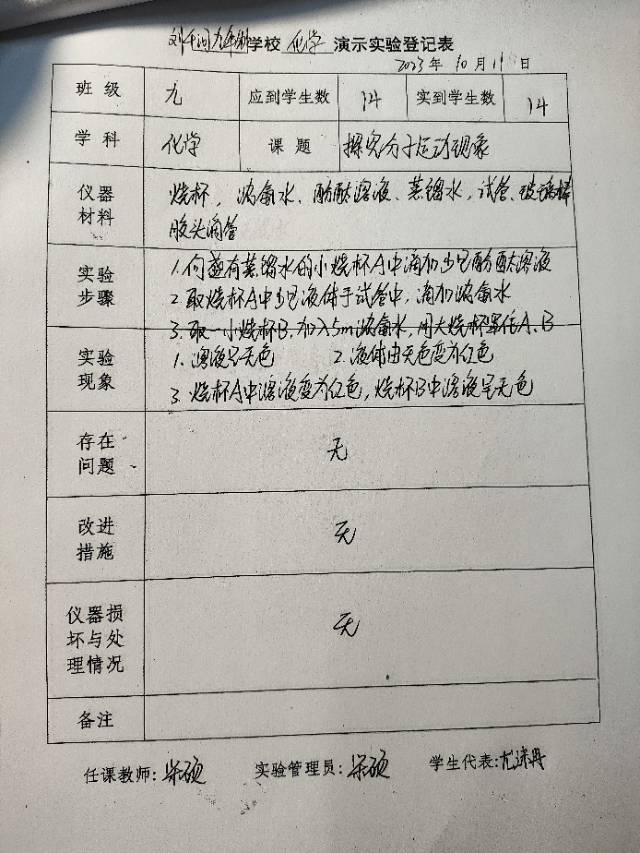 学校 化学 演示实验登记表
2023年 10月 11日
班级 九 应到学生数 14 实到学生数 14
学科 化学 课题 探究分子运动现象
仪器材料 烧杯，浓氨水、酚酞溶液、蒸馏水，试管、玻璃棒
胶头滴管
实验步骤 1.向盛有蒸馏水的小烧杯A中滴加少量酚酞溶液
2.取烧杯A中少量液体于试管中，滴加浓氨水
3.取一小烧杯B，加入5m浓氨水，用大烧杯罩住A、B
实验现象 1.溶液呈无色 2.液体由无色变为红色
3.烧杯A中溶液变为红色，烧杯B中溶液呈无色
存在问题 无
改进措施 无
仪器损坏与处理情况 无
备注
任课教师: 实验管理员: 学生代表: